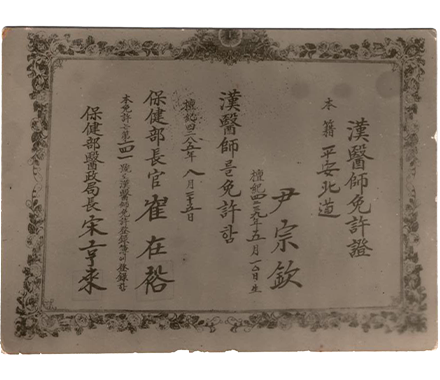 漢醫師免許證
本籍 平安北道
尹宗欽
檀紀四二 九年 五月一 日生
漢醫師를免許함
檀紀四二八五年八月二十五日
保健部長官 崔在裕
本免許는第一四一號로漢醫師免許登錄簿에登錄함
保健部醫政局長 宋亨來